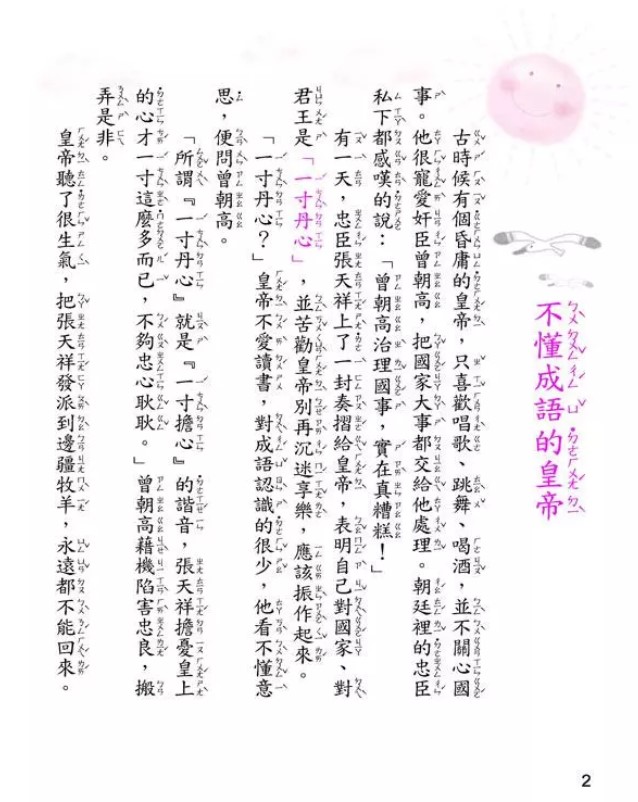 不懂成語的皇帝
古時候有個昏庸的皇帝，只喜歡唱歌、跳舞、喝酒，並不關心國
事。他很寵愛奸臣曾朝高，把國家大事都交給他處理。朝廷裡的忠臣
私下都感嘆的說：「曾朝高治理國事，實在真糟糕！」
有一天，忠臣張天祥上了一封奏摺給皇帝，表明自己對國家、對
君王是「一寸丹心」，並苦勸皇帝別再沉迷享樂，應該振作起來。
「一寸丹心？」皇帝不愛讀書，對成語認識的很少，他看不懂意
思，便問曾朝高。
「所謂『一寸丹心』就是『一寸擔心』的諧音，張天祥擔憂皇上
的心才一寸這麼多而已，不夠忠心耿耿。」曾朝高藉機陷害忠良，搬
弄是非。
皇帝聽了很生氣，把張天祥發派到邊疆牧羊，永遠都不能回來。
2